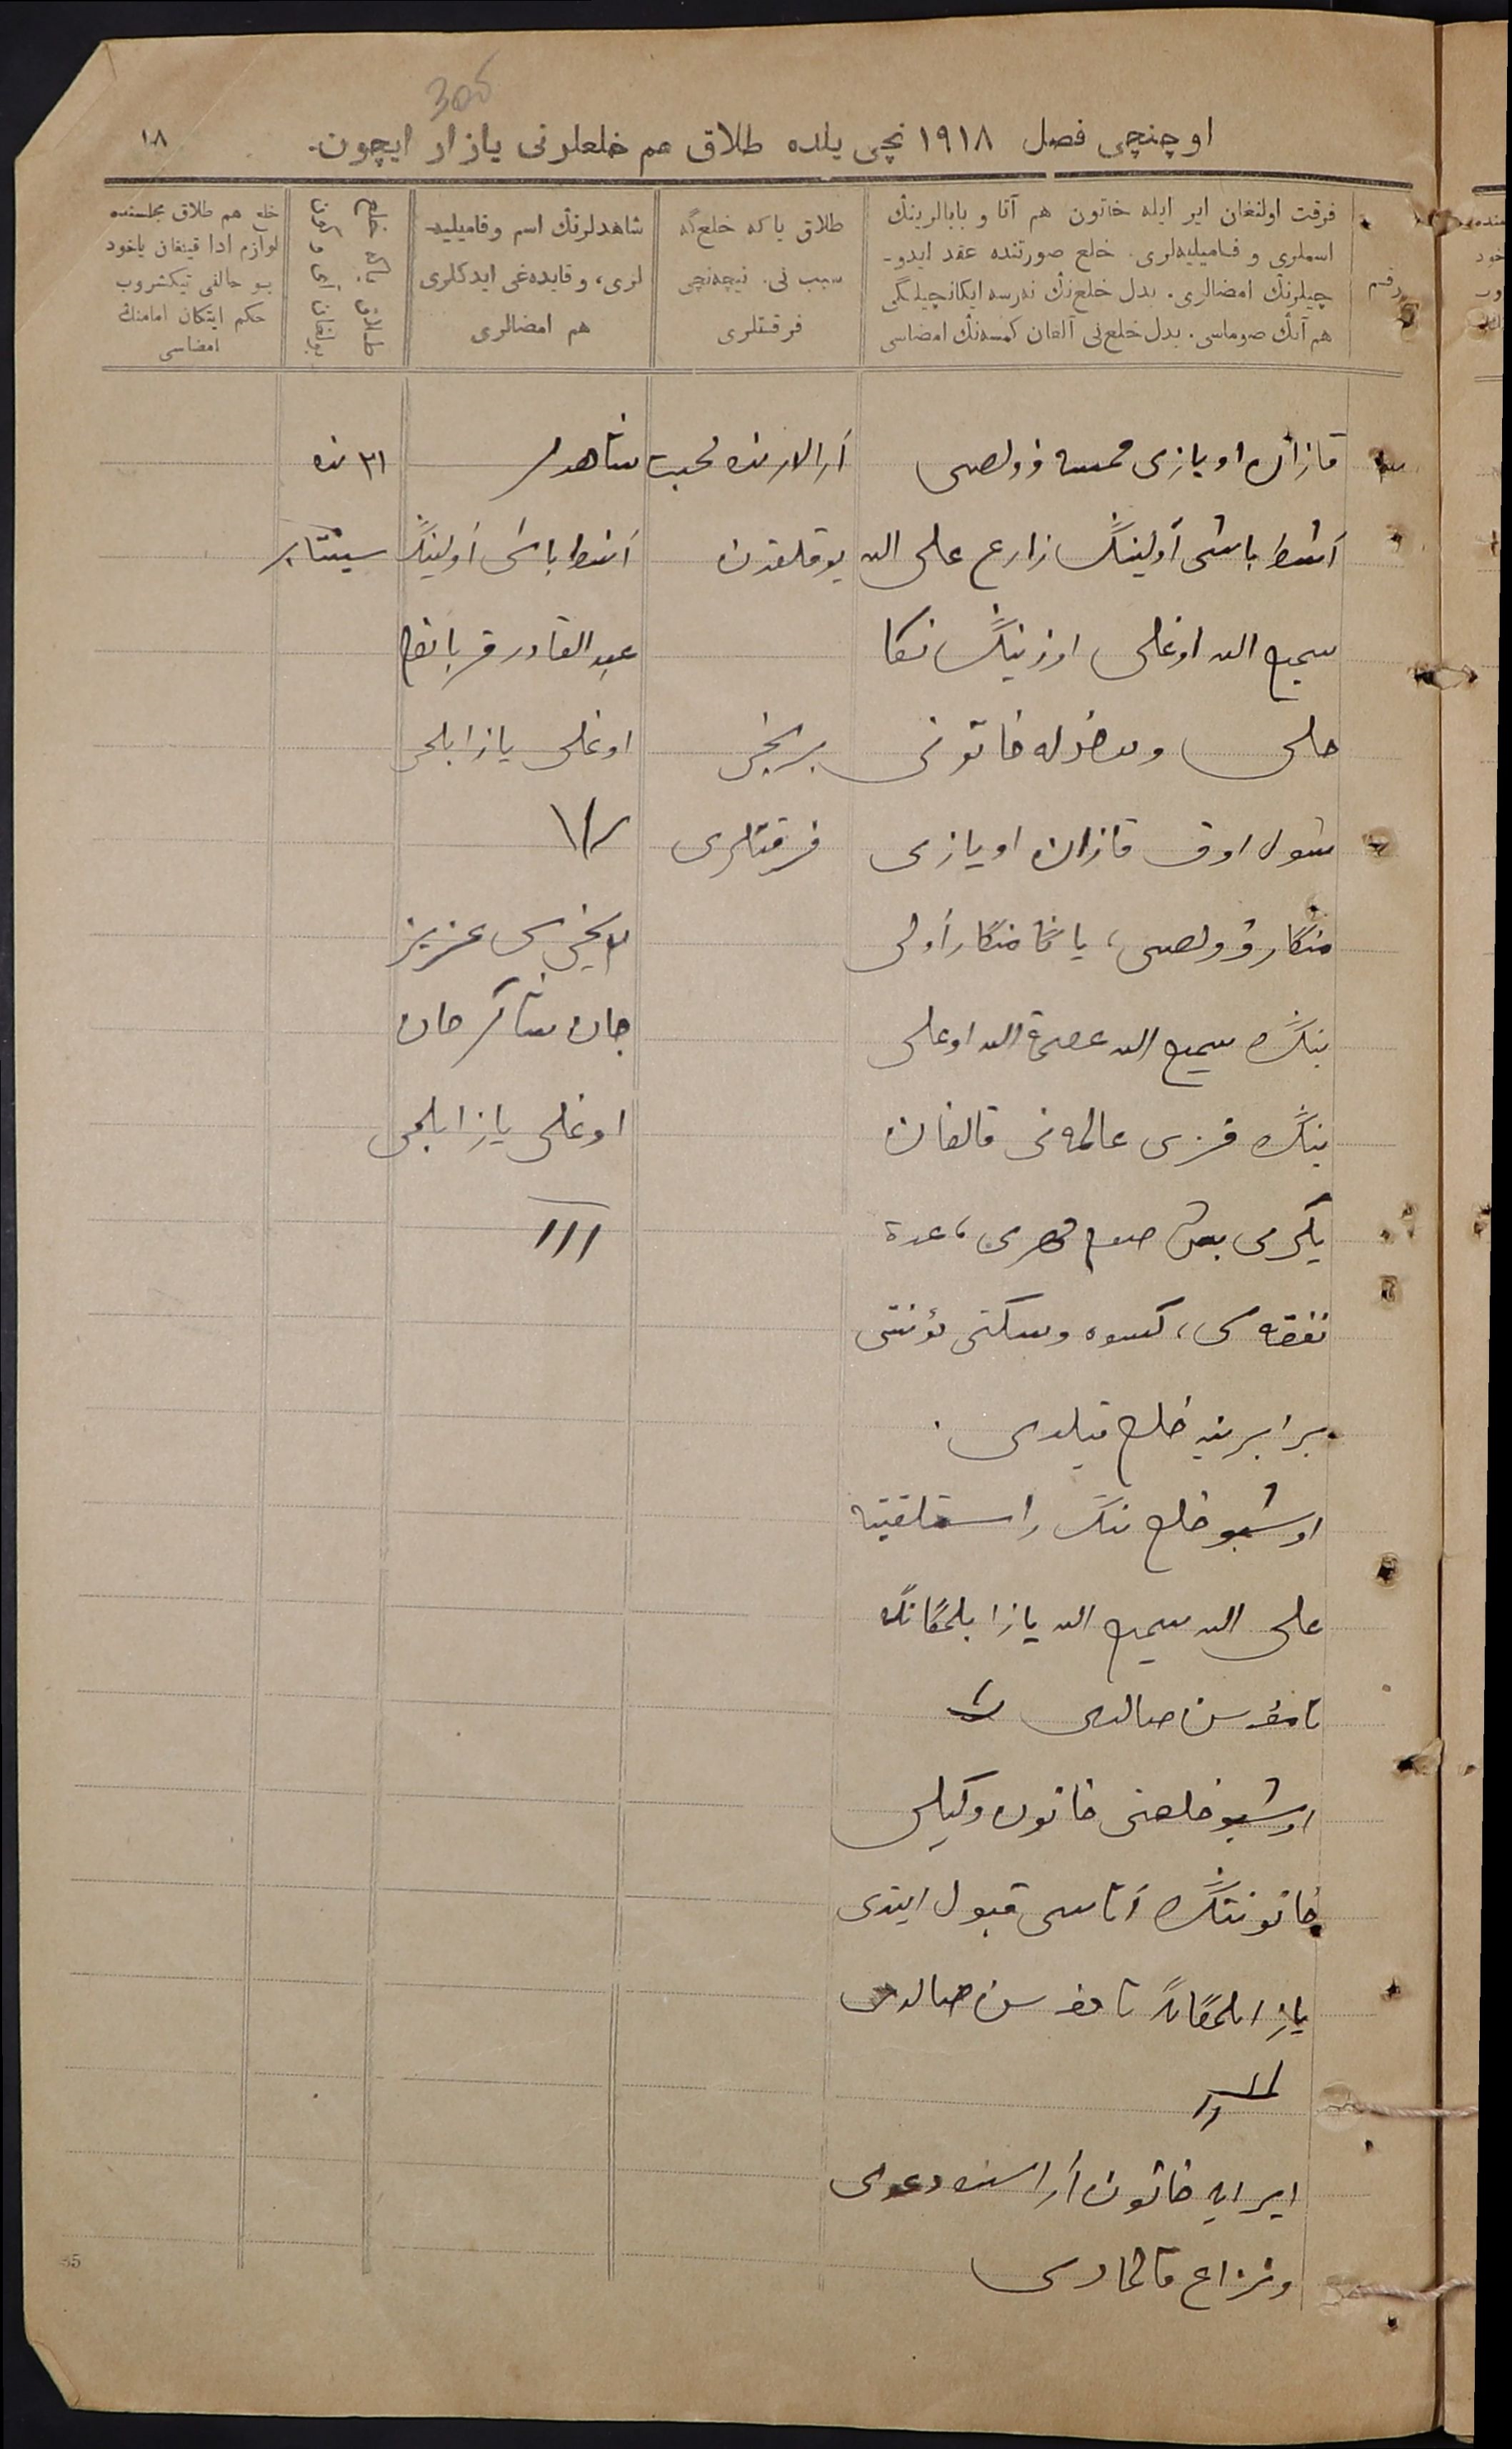 305
اوچنچی فصل ١٩١٨ نچی یلده طلاق هم خلعلرنی یازار ایچون.
١٨
رقم
فرقت اولنغان ایر ایله خاتون هم آتا و بابالرینڭ
اسملری و فامیلیه‌لری. خلع صورتنده عقد ایدو-
چیلرنڭ امضالری. بدل خلع‌نڭ نه‌رسه ایکانچیلگی
هم آنڭ صوماسی. بدل خلع‌نی آلغان کمسه‌نڭ امضاسی
طلاق یا‌که خلع‌گه
سبب نی. نیچه‌نچی
فرقتلری
شاهدلرنڭ اسم وفامیلیه-
لری، و قایده‌غی ایدکلری
هم امضالری
طلاق یا‌که خلع
بولغان آی و کون
خلع هم طلاق مجلسنده
لوازم ادا قیلغان یاخود
بو حالنی تیکشروب
حکم ایتکان امامنڭ
امضاسی
قازان اویازی وولصی
آشط باشی آولینڭ زارع علی الله
سمیع الله اوغلی اوزینڭ نکا
حلی خاتونی
شول اوق قازان اویازی
منکار وولصی، یاڭا منکار آولی
نڭ سمیع الله عصمة الله اوغلی
نڭ قزی عالمه‌نی قالغان
یکرمی بش صوم مهری، عدة
نفقه‌سی، کسوه وسکنی مؤنتی
برابرینه خلع قیلدی.
اوشبو خلع ننڭ راستلقینه
علی الله سمیع الله یازا بلمگانگه
تامغاسن صالدی
اوشبو خلعنی خاتون وکیلی
خاتوننڭ آتاسی قبول ایتدی
یازا بلمگانگه تامغاسن صالدی
ایر ایله خاتون آراسنده دعوی
ونزاع قالمادی
آرالارنده محبت
یوقلقدن
برنچی
فرقتلری
شاهدلر
آشط باشی آولینڭ
عبدالقادر قربانغالی
اوغلی یازا بلمی
١٧
عزیز
جان شاکر جان
اوغلی یازا بلمی
III
٢١ نده
سینتابر
35